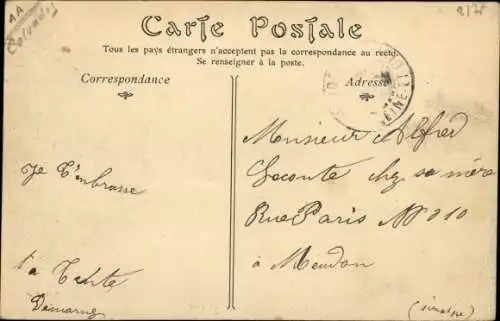 AA
Calvados
2/75
Carte Postale
Tous les pays étrangers n'acceptent pas la correspondance au recto.
Se renseigner à la poste.
Correspondance
Adresse
Je t'embrasse
ta Tante
Demarne
Monsieur Alfred
Leconte chez sa mère
Rue Paris Nº 010
à Meudon